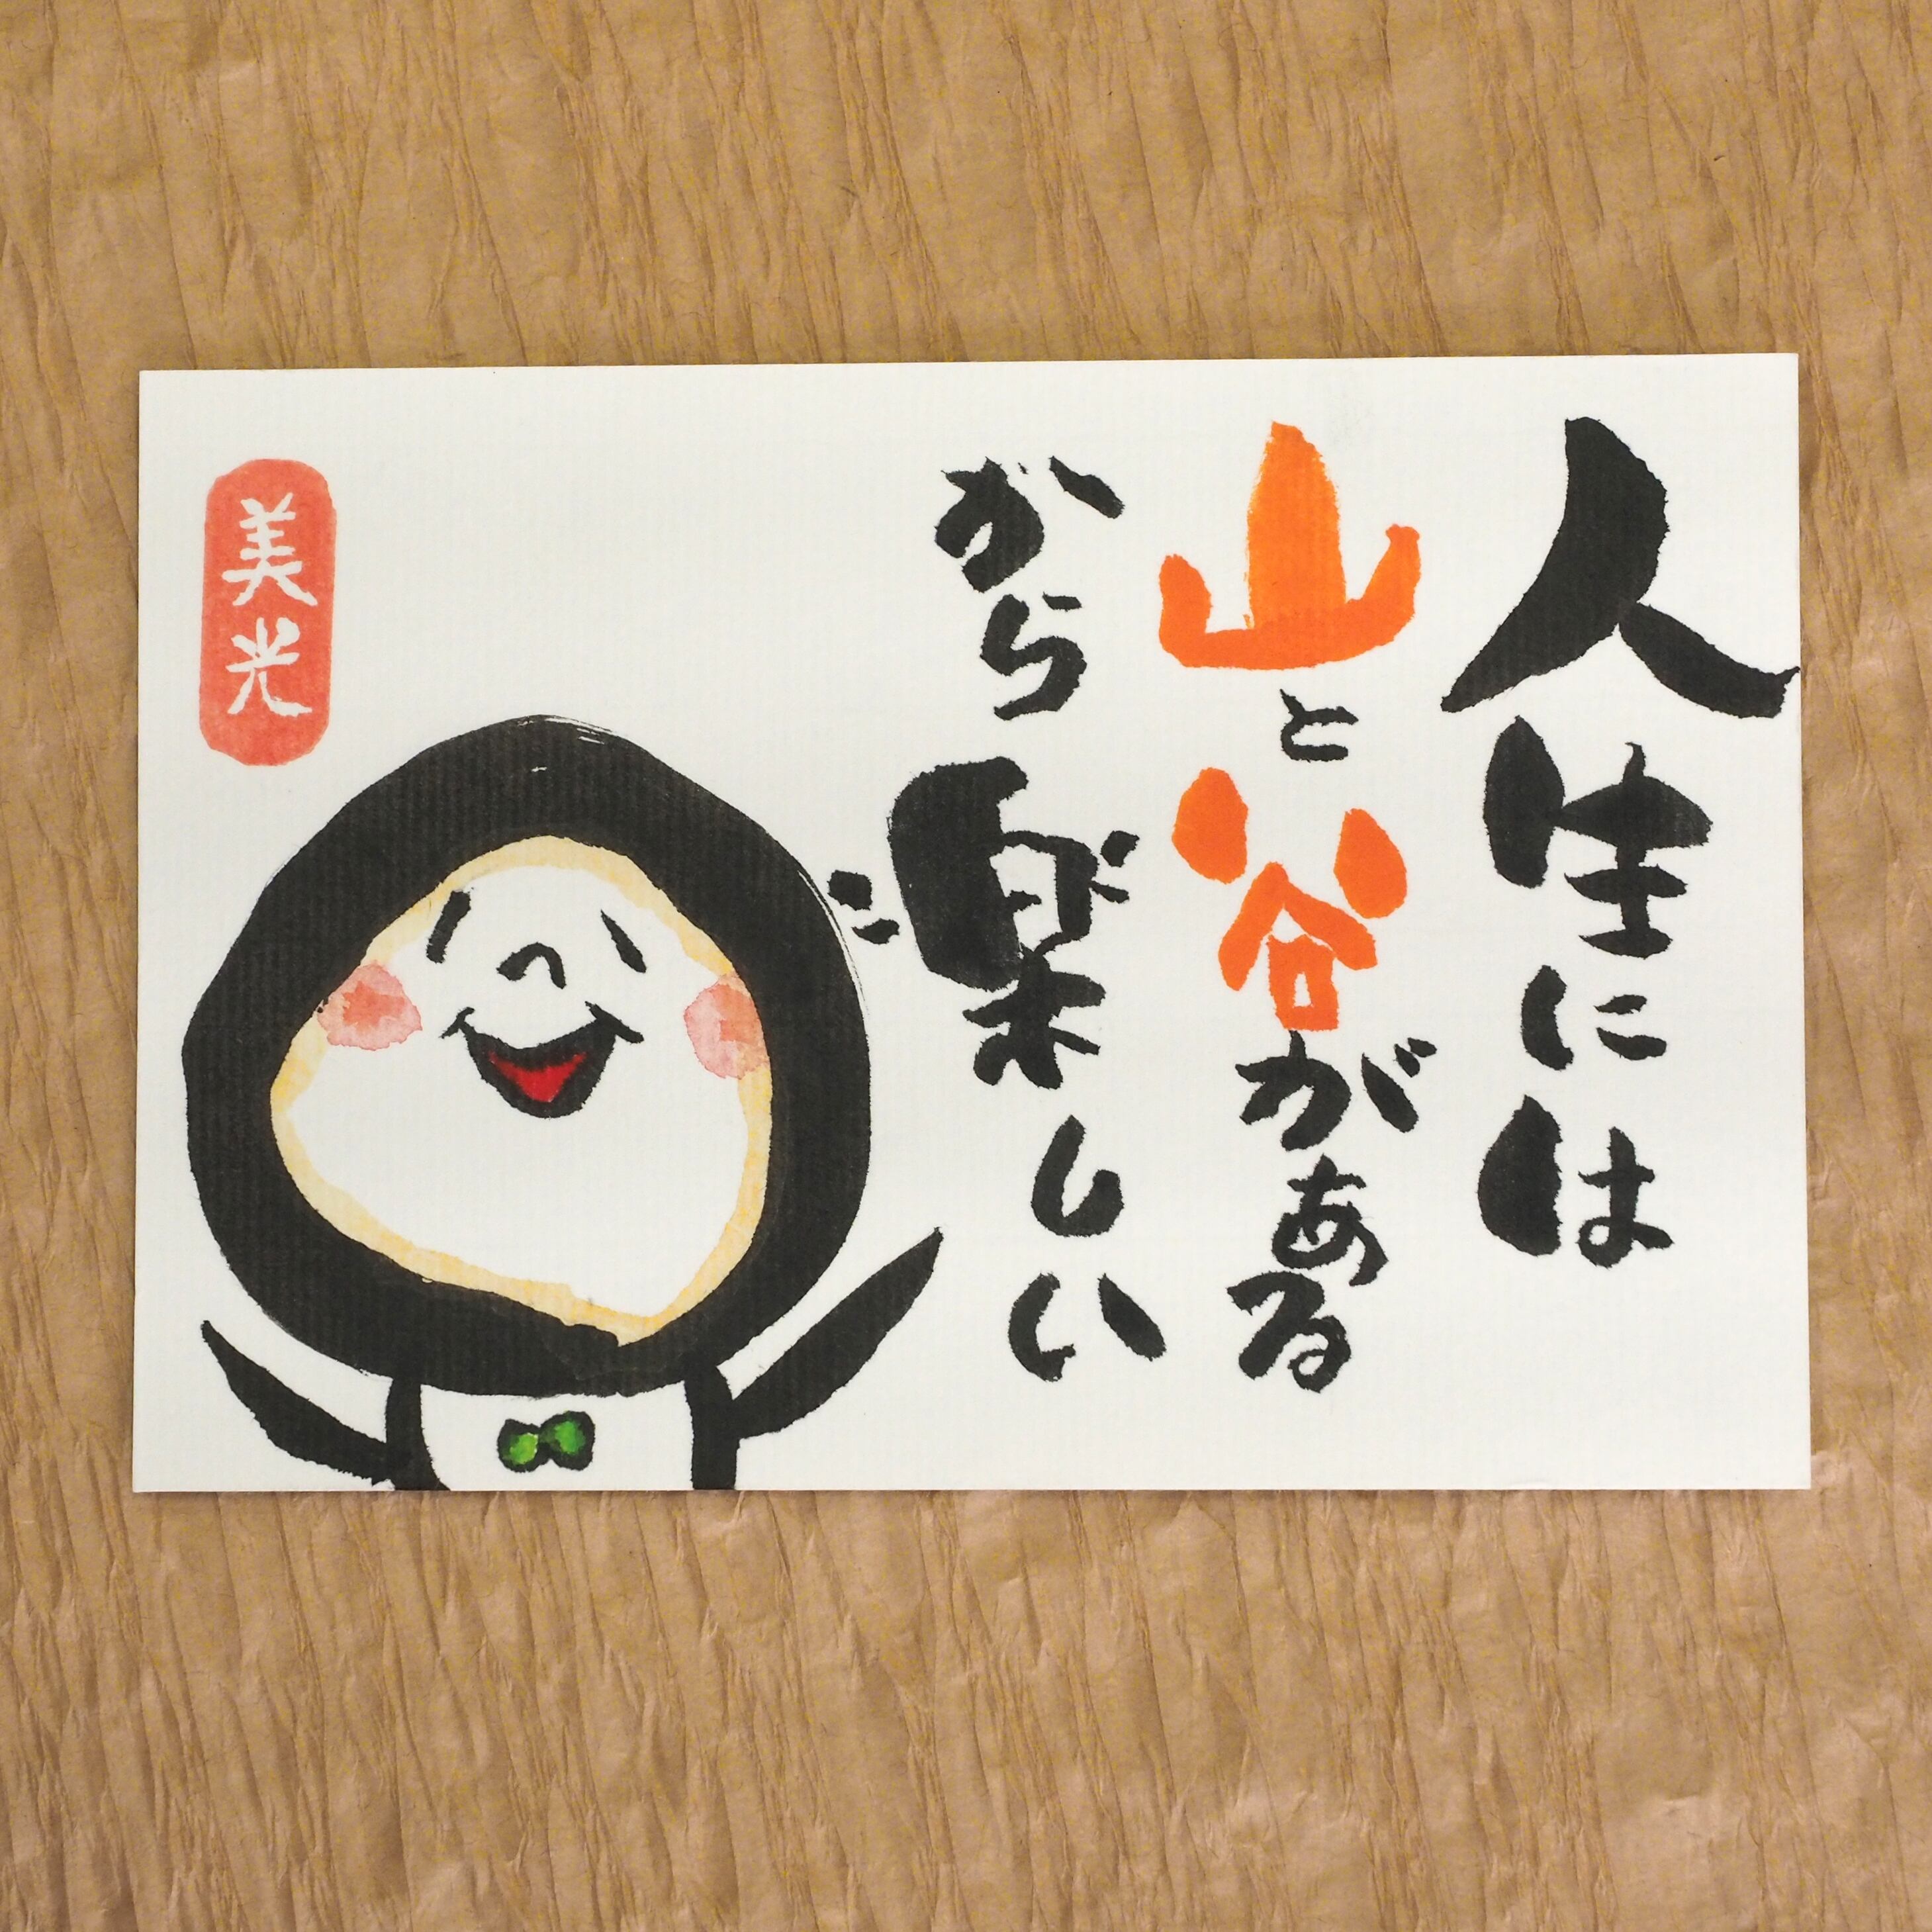 人生には
山と谷がある
から楽しい
美光